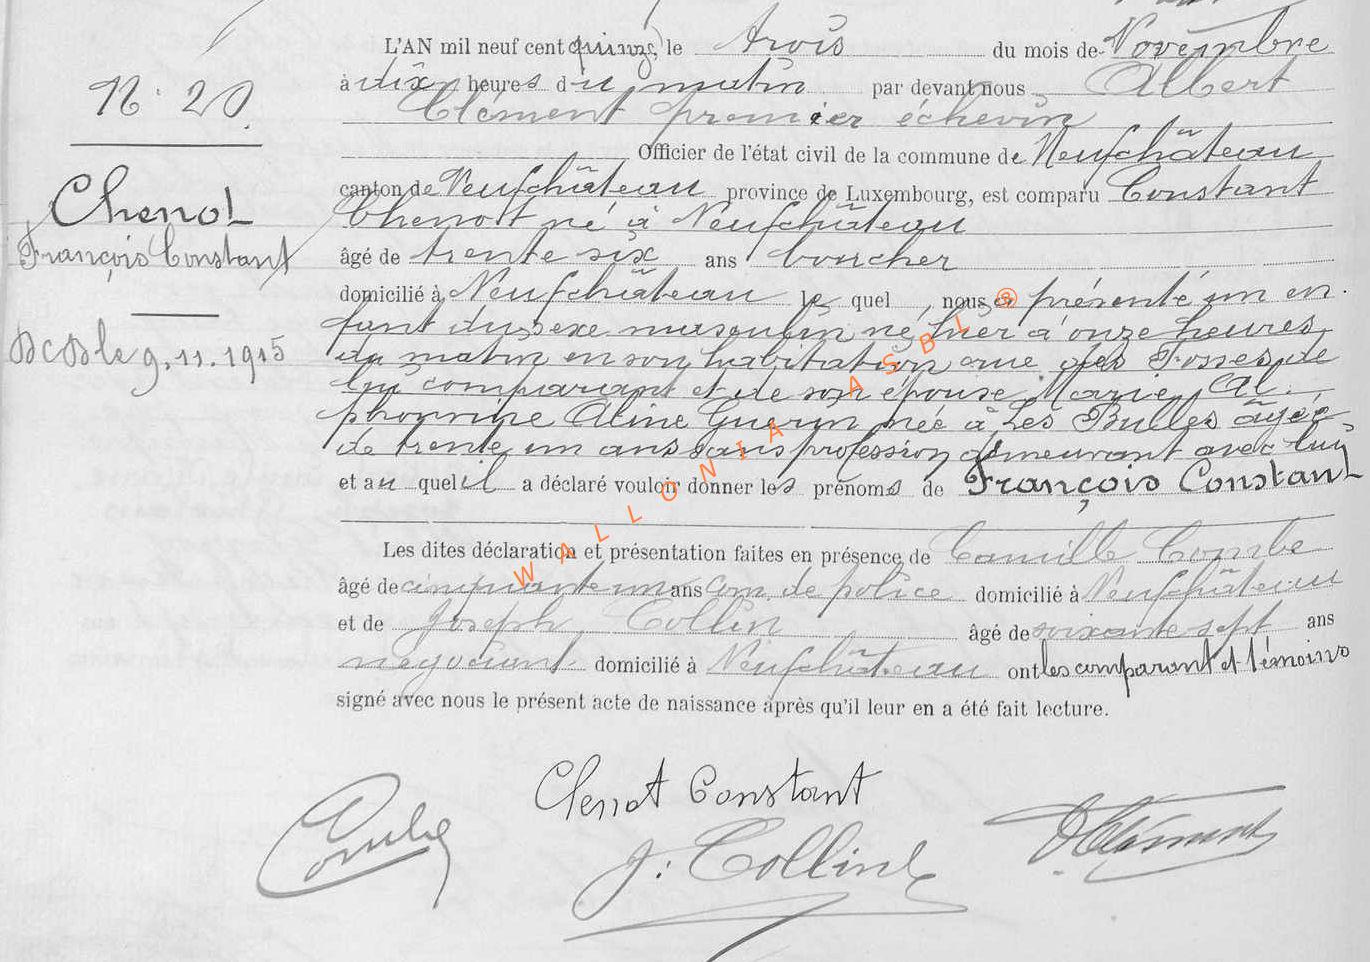 L'AN mil neuf cent quinze, le trois du mois de Novembre
à dix heures du matin par devant nous Albert
Clément premier échevin
Officier de l'état civil de la commune de Neufchâteau
canton de Neufchâteau province de Luxembourg, est comparu Constant
Chenot né à Neufchâteau
âgé de trente six ans boucher
domicilié à Neufchâteau le quel, nous a présenté un en-
fant du sexe masculin né hier à onze heures
du matin en son habitation rue des Fossés de
lui comparant et de son épouse Marie Al-
phonsine Aline Guerin née à Les Bulles âgée
de trente un ans sans profession demeurant avec lui
et au quel il a déclaré vouloir donner les prénoms de François Constant
Les dites déclaration et présentation faites en présence de Camille Combe
âgé de cinquante un ans Com. de police domicilié à Neufchâteau
et de Joseph Collin âgé de soixante sept ans
negociant domicilié à Neufchâteau ont les comparant et témoins
signé avec nous le présent acte de naissance après qu'il leur en a été fait lecture.
N. 20.
Chenot
François Constant
Dcd le 9.11.1915
Combe
Chenot Constant
J. Collin
AClément
WALLONIA ASBL ®